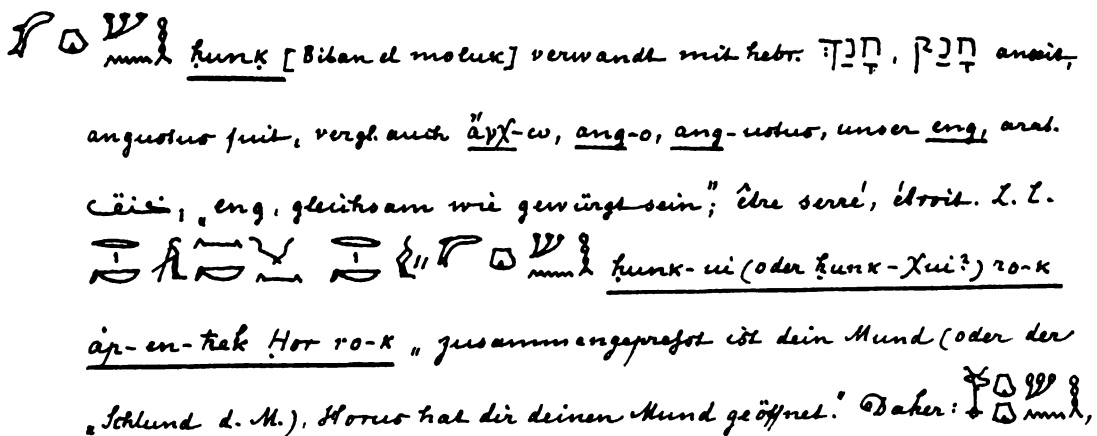 ḥunḳ [Biban el moluk] verwandt mit hebr. חָנַךְ, חָנַק anxit,
angustus fuit, vergl. auch ἄγχ-ω, ang-o, ang-ustus, unser eng, arab.
„eng, gleichsam wie gewürgt sein“; être serré, étroit. L. L.
ḥunk-ui (oder ḥunk-χui?) ro-k
áp-en-tek Ḥor ro-k „zusammengepreſst ist dein Mund (oder der
„Schlund d. M.), Horus hat dir deinen Mund geöffnet.“ Daher: